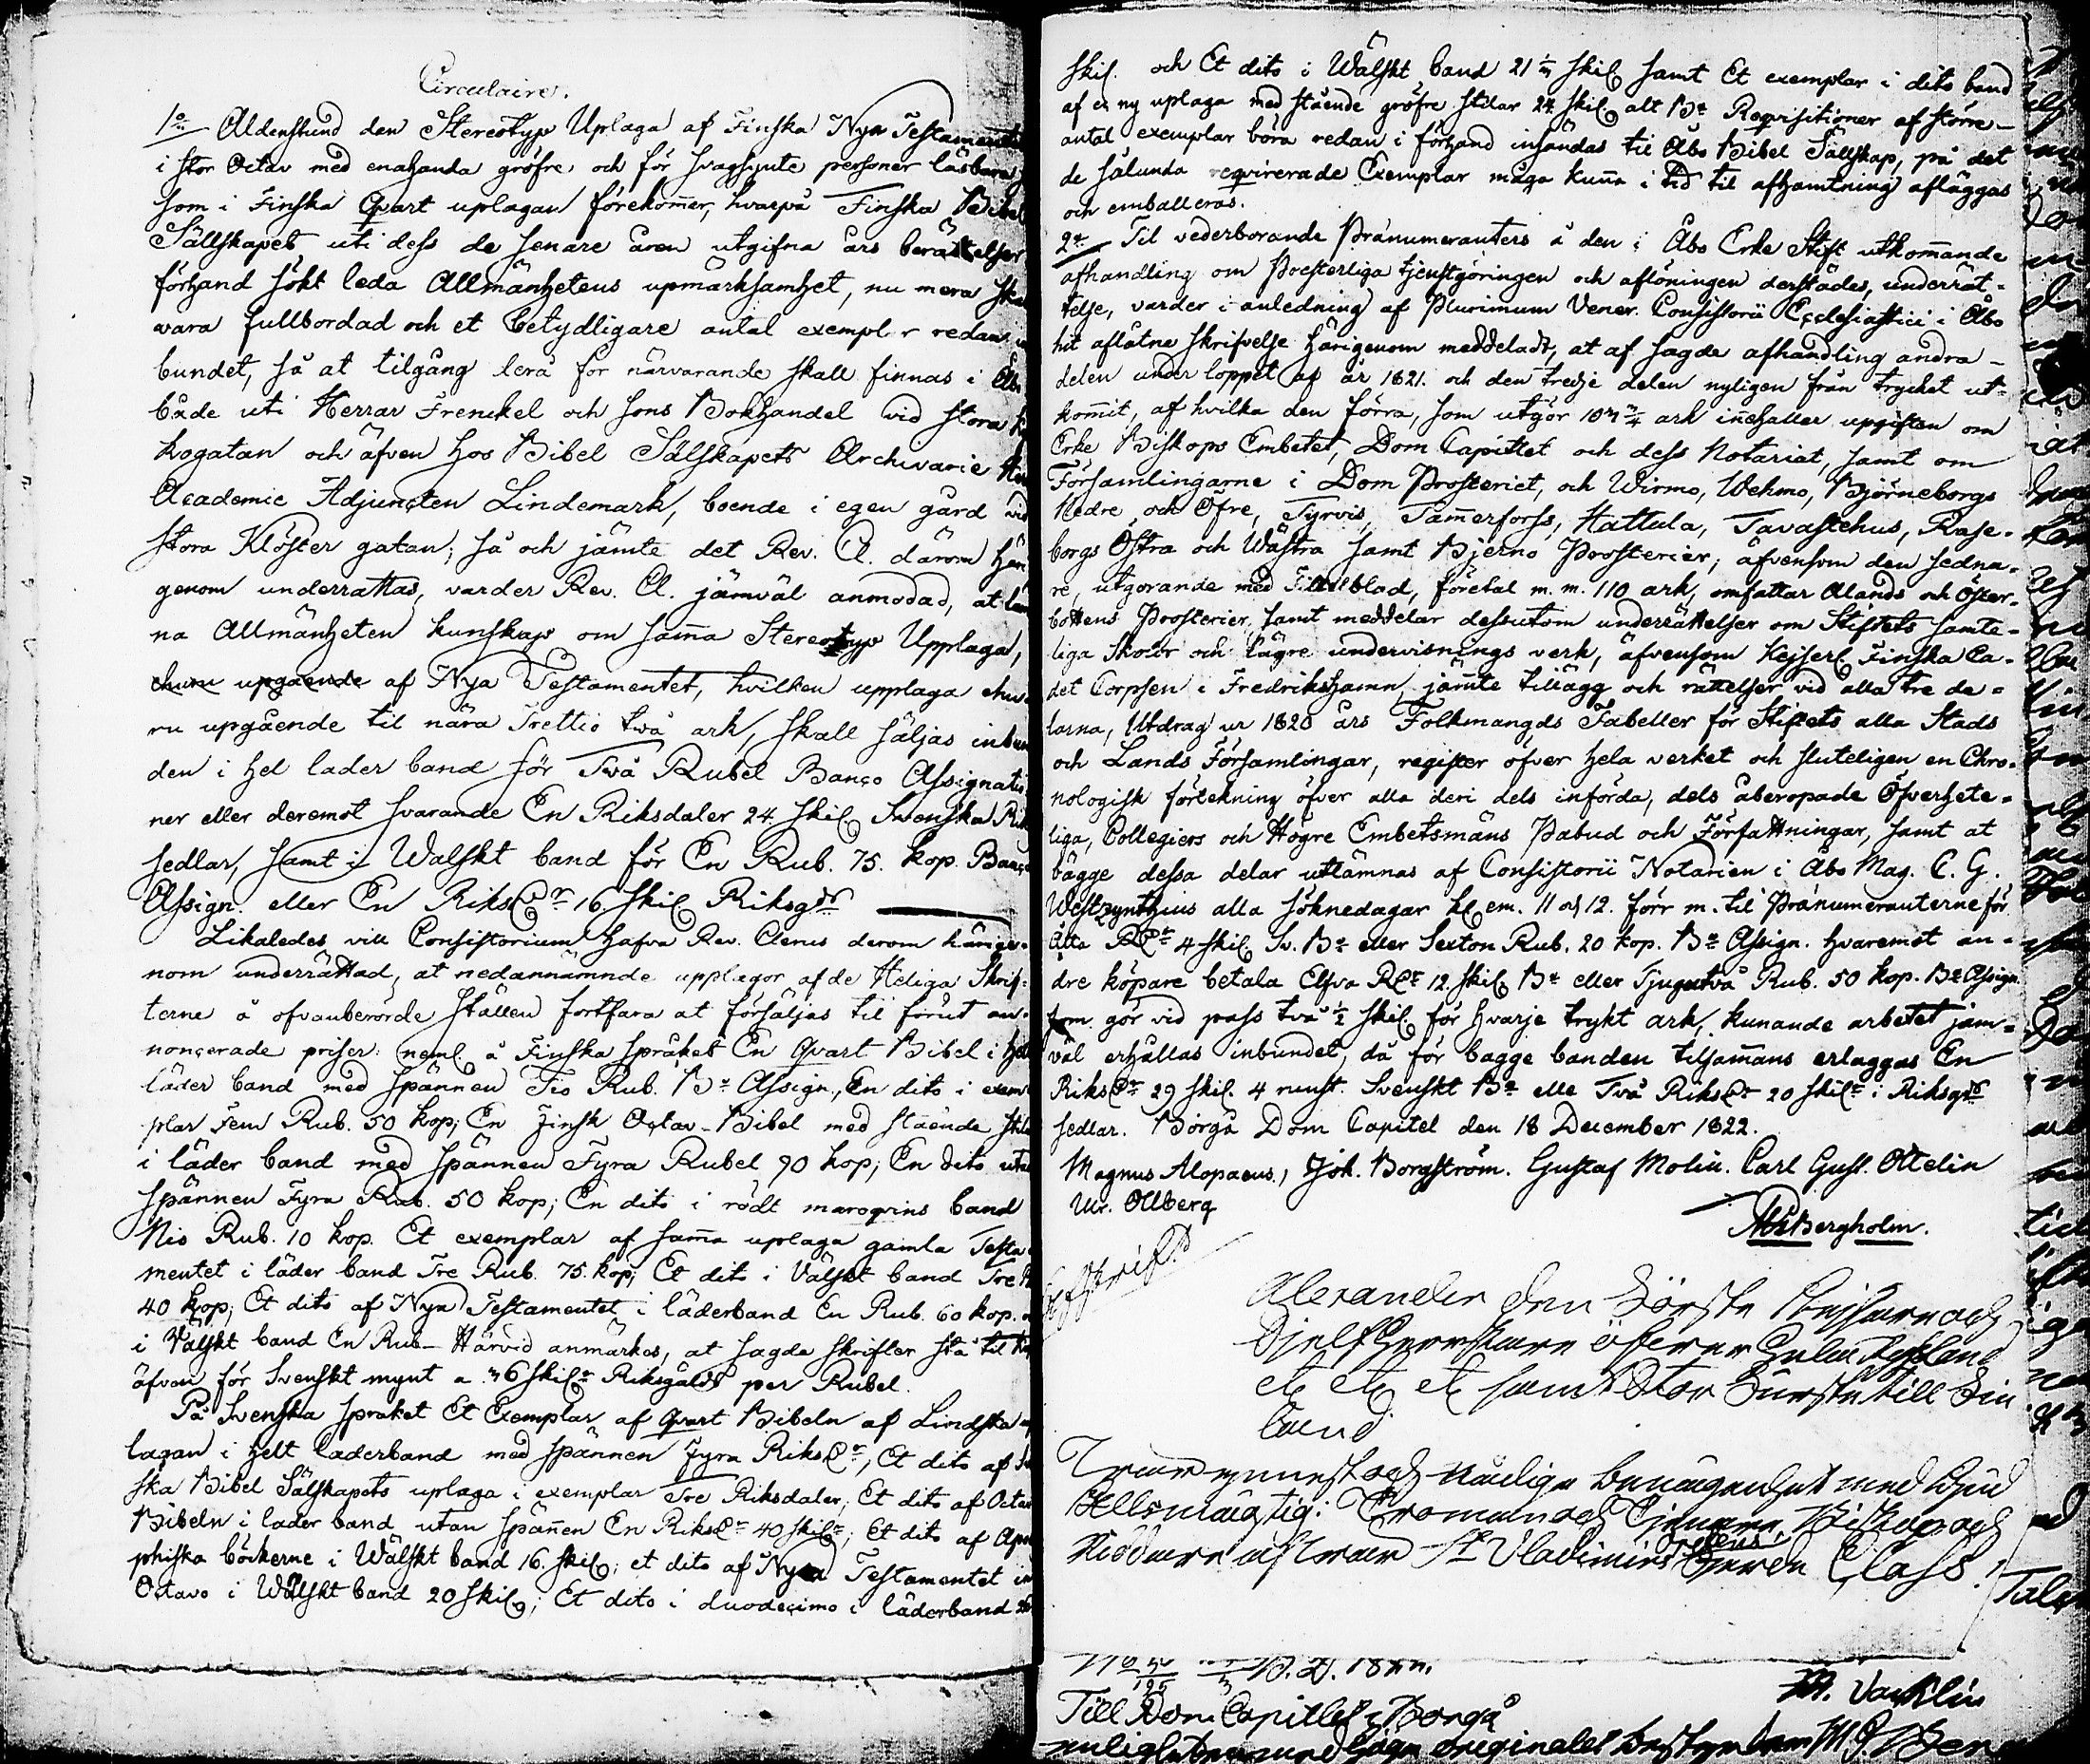 Circulaire.
1o Aldenstund den Stereotyp Uplaga af Finska Nya Testamentet
i stor Octav med enahanda gröfre och för svagsynte personer läsbara
som i Finska Qvart uplagan förekom̄er, hvarpå Finska Bibel
Sällskapet uti dess de senare åren utgifna års berättelser
förhand sökt leda Allmänhetens upmärksamhet, nu mera skal
vara fullbordad och et betydligare antal exemplar redan
bundet, så at tilgång lerä för närvarande skall finnas i Åbo
både uti Herrar Frenckel och Sons Bokhandel vid stora
kogatan och äfven hos Bibel Sälskapets Archivarie
Academie Adjuncten Lindemark, boende i egen gård vid
stora Klöster gatan; så och jämte det Rev. Cl. därom här
genom underrättas, varder Rev. Cl. jämväl anmodad, at läm
na Allmänheten kunskap om sam̄a Stereotyp Upplaga,
churu upgående af Nya Testamentet, hvilken upplaga ehu
ru upgående til nära Trettio två ark, skall säljas inbun
den i hel läder band för Två Rubel Banco Assignatio
ner eller deremot svarande En Riksdaler 24 skil Svenska Rik
sedlar, samt i Walskt band för En Rub. 75. kop. Banco
Assign. eller En Riksdr 16 skil Riksgds
Likaledes vill Consistorium hafva Rev. Clerus derom härige-
nom underrättad, at nedannämnde upplagor af de Heliga Skrif-
terne å ofvanberörde ställen fortfara at försäljas til förut an-
noncerade priser: neml. å Finska språket En Qvart Bibel i helt
läder band med spännen Tio Rub. Bo Assign., En dito i exem
plar Fem Rub. 50 kop; En Finsk Octav-Bibel med stående stilar
i läder band med spännen Fyra Rubel 90 kop; En dito utan
spännen Fyra Rub. 50 kop; En dito i rödt maroqvins band
Nio Rub. 10 kop. Et exemplar af sam̄a uplaga gamla Testa
mentet i läder band Tre Rub. 75. kop; Et dito i Välskt band Tre
40 kop; Et dito af Nya Testamentet i läderband En Rub. 60 kop.
i Välskt band En Rub- Härvid anmärkes, at sagde skrifter stå til
äfven för Svenskt mynt a 36 skilr Riksgälds per Rubel.
På Svenska språket Et Exemplar af Qvart Bibeln af Lindska
lagan i helt läderband med spännen Fyra Riksdr, Et dito af
ska Bibel Sälskapets uplaga i exemplar Tre Riksdaler; Et dito af Octav
Bibeln i läder band utan spän̄en En Riksdr 40 skilr; Et dito af Apo
phiska böckerne i Wälskt band 16. skil; et dito af Nya Testamentet
Octavo i Wälskt band 20 skil; Et dito i duodecimo i läderband
skil. och Et dito i Wälskt band 21 1/3 skil samt Et exemplar i dito band
af en ny uplaga med stående gröfre stilar 24 skil alt Bo Reqvisitioner af större
antal exemplar böra redan i förhand insändas til Åbo Bibel Sällskap, på det
de sålunda reqvirerade Exemplar måga kun̄a i tid til afhämtning afläggas
och emballeras.
2o Til vederbörande Pränumeranters å den i Åbo Erke Stift utkom̄ande
afhandling om Presterliga tjenstgöringen och aflöningen derstädes, underrät-
telse, varder i anledning af Plurimum Vener. Consistorii Ecclesiastici i Åbo
hit aflåtne skrifvelse härigenom meddeladt, at af sagde afhandling andra
delen under loppet af år 1821. och den tredje delen nyligen från trycket ut-
kom̄it, af hvilka den förra, som utgör 107 3/4 ark in̄ehåller upgiften om
Erke Biskops Embetet, Dom Capitlet och dess Notariat, samt om
Församlingarne i Dom Prosteriet, och Wirmo, Wehmo, Björneborgs
Nedre och Öfre, Tyrvis, Tam̄erfors, Hattula, Tavastehus, Rase-
borgs Östra och Wästra samt Bjerno Prosterier, äfvensom den sedna-
re, utgorande med Titelblad, företal m. m. 110 ark, omfattar Alands och Öster-
bottens Prosterier, samt meddelar dessutom underrättelser om Stiftets samte-
liga skolor och lägre undervisnings verk, äfvensom Kejserl Finska Ca-
det Corpsen i Fredrikshamn jämte tillägg och rättelser vid alla tre de-
larna, Utdrag ur 1820 års Folkmängds Tabeller för Stiftets alla Stads
och Lands Församlingar, register öfver hela verket och sluteligen en Chro-
nologisk förtekning öfver alla deri dels införda, dels åberopade Öfverhete-
liga, Collegiers och Högre Embetsmäns Påbud och Författningar, samt at
bägge dessa delar utlämnas af Consistorii Notarien i Åbo Mag. C. G.
Westzynthius alla söknedagar kl em. 11 och 12. förr m. til Pränumeranterne för
Åtta Rdr 4 skil. Sv. Bo eller Sexton Rub. 20 kop. Bo Assign. hvaremot an-
dre köpare betala Elfva Rdr 12. skil. Bo eller Tjugutvå Rub. 50 kop. Bo Assign.
som gör vid pass två 1/2 skil. för hvarje trykt ark, kunande arbetet jäm-
väl erhållas inbundet, då för bägge banden tilsam̄ans erläggas En
Riksdr 29 skil. 4 runst. Svenskt Bo elle Två Riksdr 20 skilr i Riksgds
sedlar. Borgå Dom Capitel den 18 December 1822.
Magnus Alopaeus, Joh. Borgström. Gustaf Molin. Carl Gust. Ottelin
Ur. Ollberg
Bergholm.
Afskrift
Alexander den Förste Kejsare och
Sjelfherrskare öfver hela Ryssland
etc etc etc samt Stor Furste till Fin
land
Wår ynnest och nådiga benägenhet med Gud
Allsmägtig: Troman och Tjenare, Biskop och
Riddare af Wår St Vladimirs Orden Class.
Till Dom Capitlet i Borgå